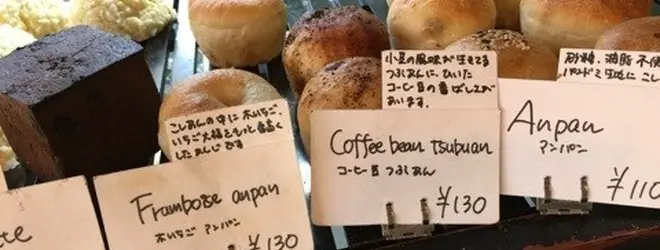 tte
こしあんの中に木いちご、
いちご大福をもっと香高く
したあじです
Framboise anpan
木いちご アンパン
¥130
小豆の風味が生きてる
つぶあんに、ひいた
コーヒー豆の香ばしさが
あいます。
Coffee bean tsubuan
コーヒー豆 つぶあん
¥130
砂糖、油脂不使
こし
Anpan
アンパン
¥110